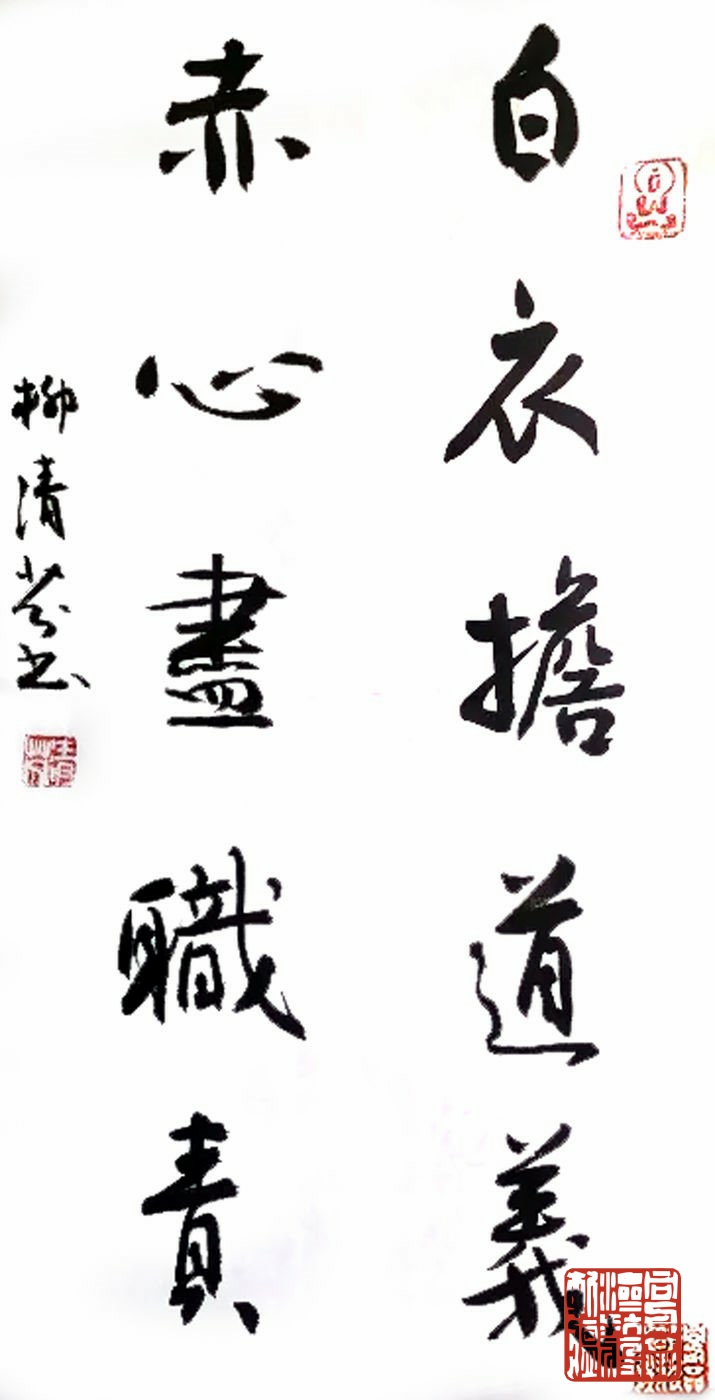 白衣擔道義
赤心盡職責
柳清芬书